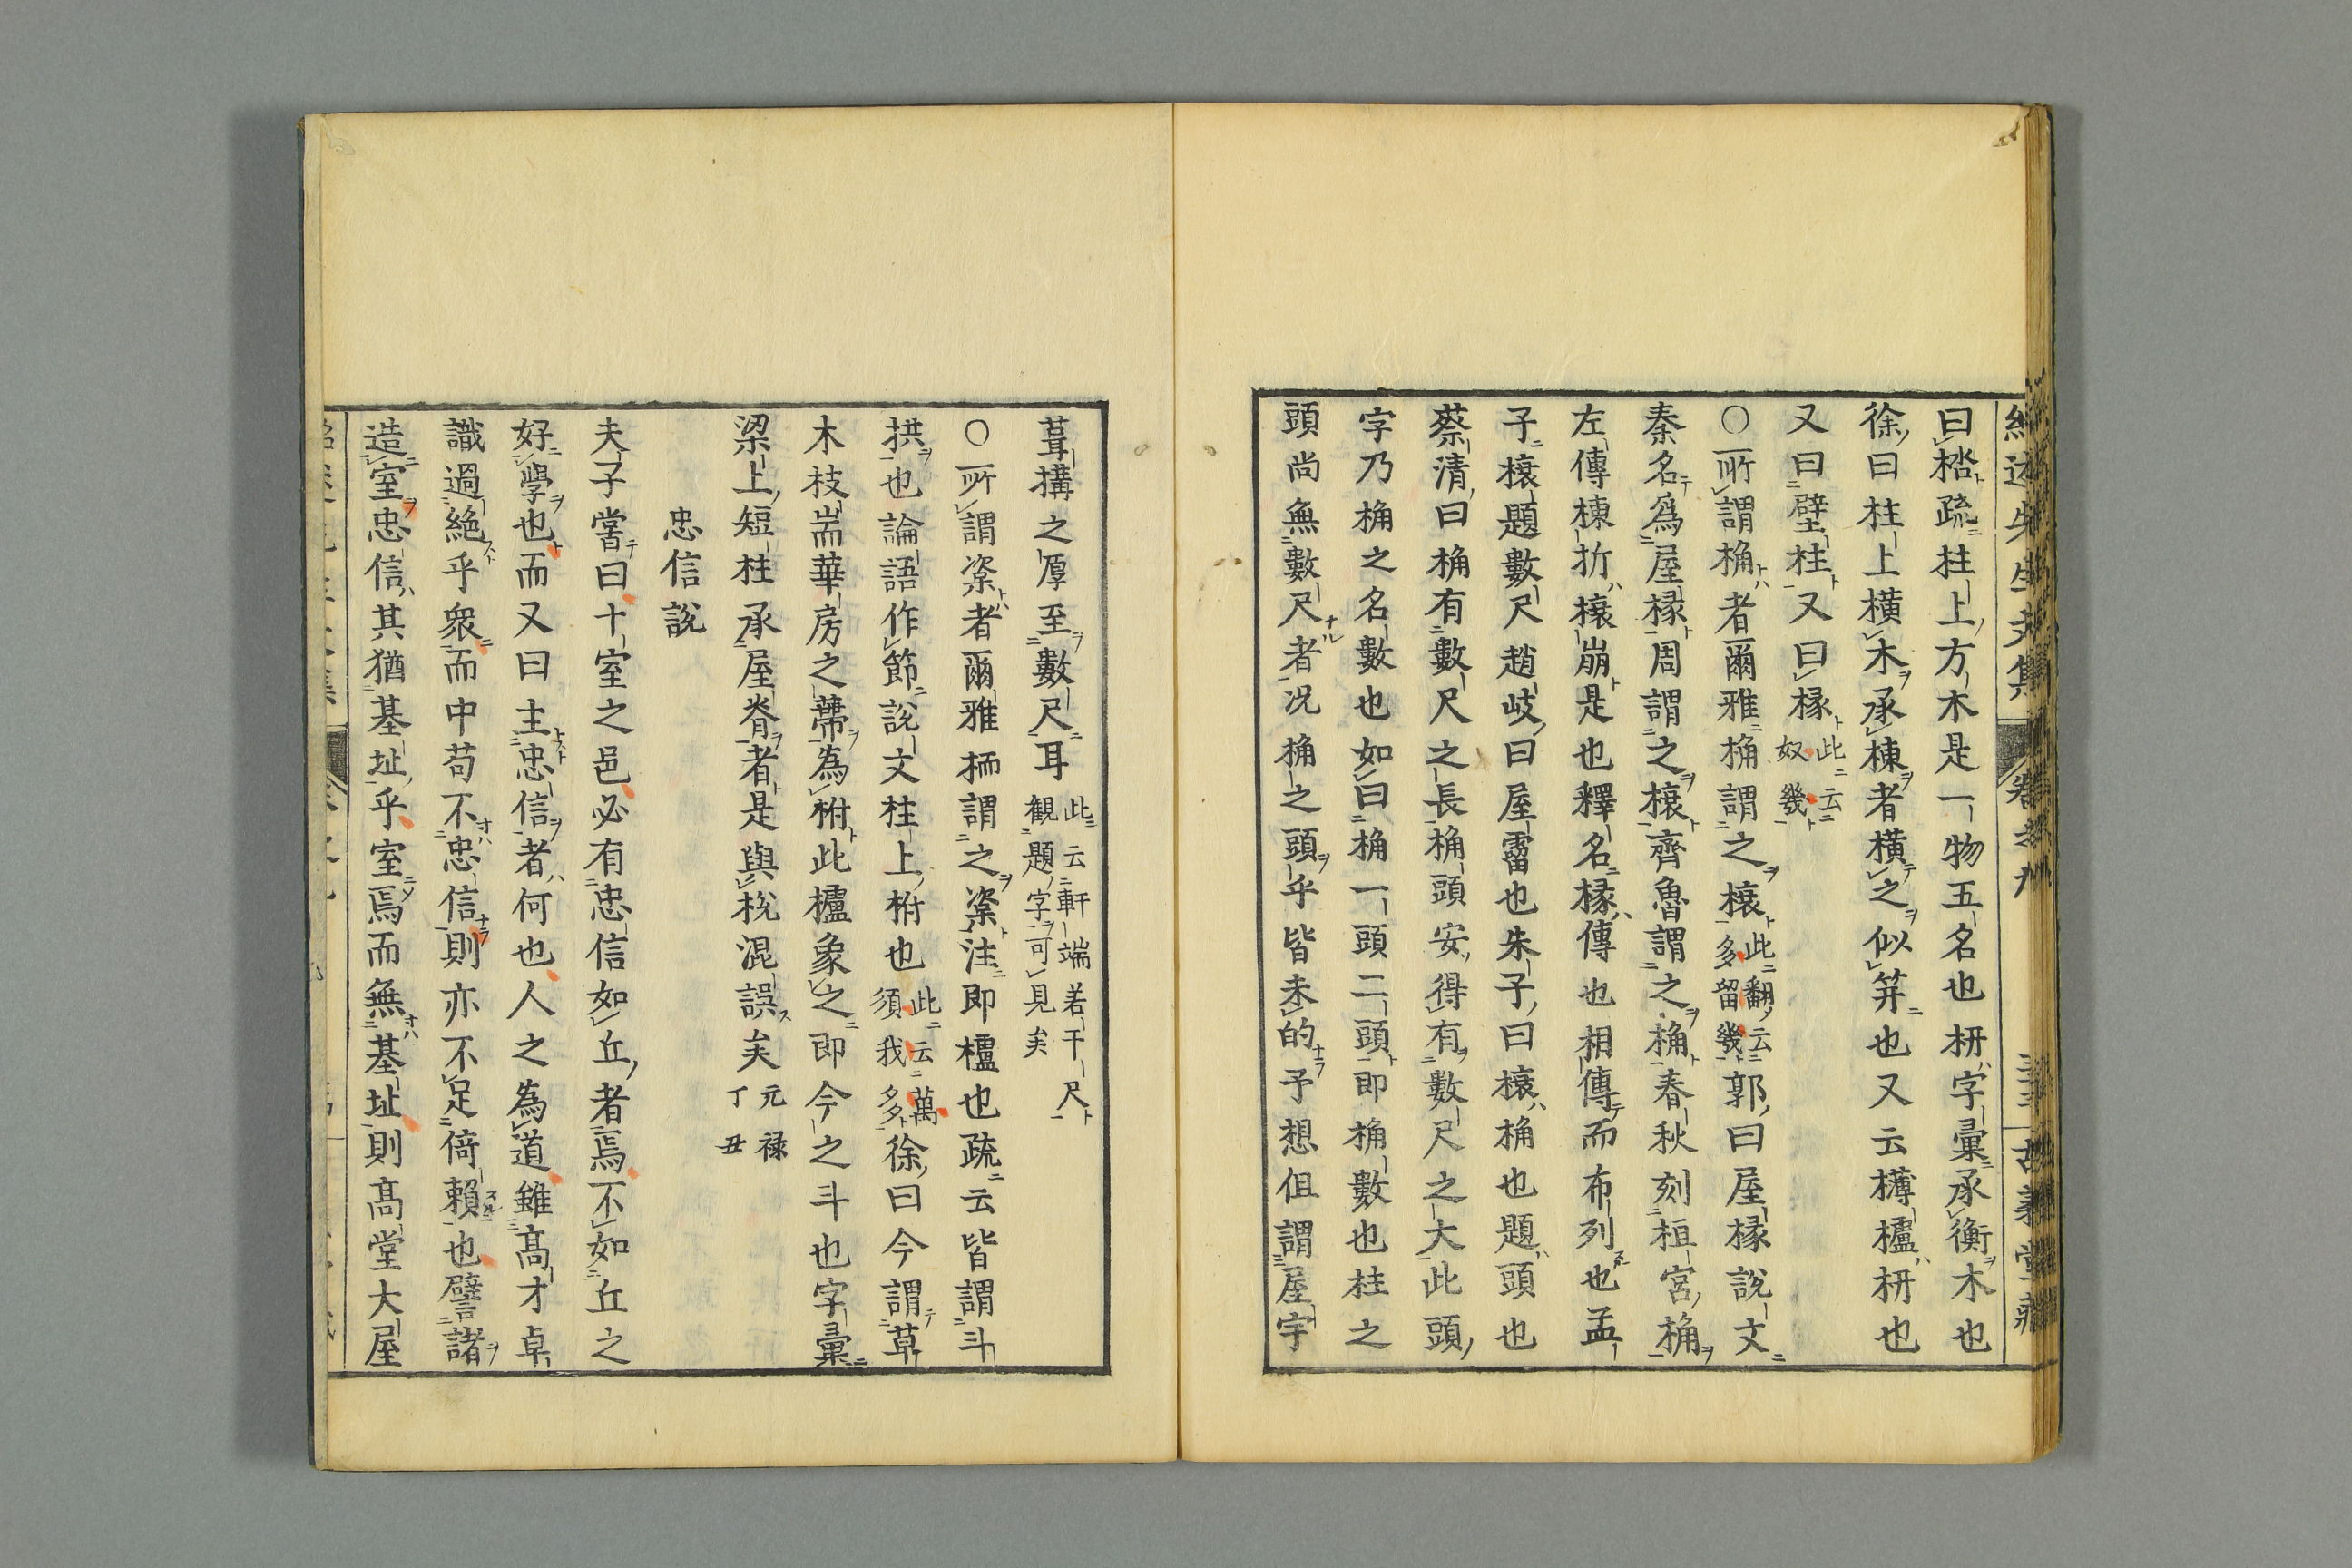 曰㭼疏柱上方木是一物五名也枅字彙承衡木也
徐曰柱上横木承棟者横之似笄也又云欂櫨枅也
又曰壁柱又曰椽此云奴幾
○所謂桷者爾雅桷謂之榱此翻云多留幾郭曰屋椽說文
秦名爲屋椽周謂之榱齊魯謂之桷春秋刻桓宮桷
左傳棟折榱崩是也釋名椽傳也相傳而布列也孟
子榱題數尺趙岐曰屋霤也朱子曰榱桷也題頭也
蔡清曰桷有數尺之長桷頭安得有數尺之大此頭
字乃桷之名數也如曰桷一頭二頭即桷數也柱之
頭尚無數尺者况桷之頭乎皆未的予想但謂屋宇
葺構之厚至數尺耳此云軒端若干尺觀題字可見矣
○所謂楶者爾雅栭謂之楶注即櫨也疏云皆謂斗
拱也論語作節說文柱上枡也此云萬須我多徐曰今謂草
木枝耑華房之蔕為柎此櫨象之即今之斗也字彙
梁上短柱承屋脊者是與梲混誤矣元禄丁丑
忠信說
夫子嘗曰十室之邑必有忠信如丘者焉不如丘之
好學也而又曰主忠信者何也人之為道雖髙才卓
識過絶乎衆而中苟不忠信則亦不足倚賴也譬諸
造室忠信其猶基址乎室焉而無基址則髙堂大屋